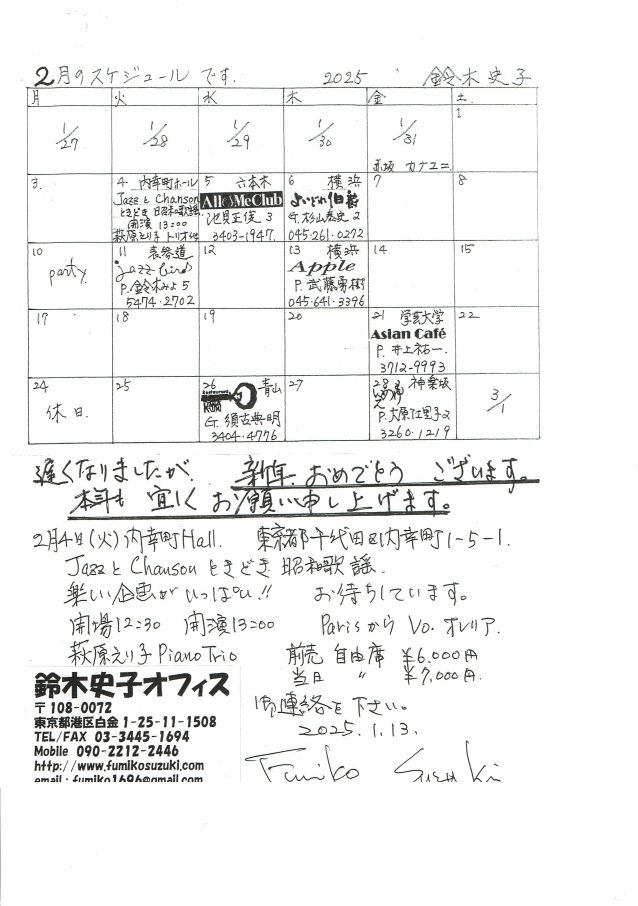 2月のスケジュールです. 2025 鈴木史子
月 火 水 木 金 土
1/27 1/28 1/29 1/30 1/31 1
赤坂 カナユニ
3. 4 内幸町ホール 5 六本木 6 横浜 7 8
Jazz と Chanson All of Me Club
ときどき昭和歌謡 池見正俊 3 G. 杉山泰史 2
開演 13:00 3403-1947. 045・261・0272
萩原えり子トリオ
10 11 表参道 12 13 横浜 14 15
party. jazz bird Apple
P. 鈴木みよ 5 P. 武藤勇樹
5474・2702 045・641・3396
17 18 19 20 21 学芸大学 22
Asian Café
P. 井上祐一.
3712-9993
24 25 26 青山 27 28 神楽坂 3/1
休日. G. 須古典明 P. 大原江里子 2
3404-4776 3260・1219
遅くなりましたが. 新年. おめでとう ございます。
本年も 宜しく お願い申し上げます。
2月4日(火)内幸町Hall. 東京都千代田区内幸町1-5-1.
Jazz と Chanson ときどき 昭和歌謡.
楽しい企画がいっぱい!! お待ちしています。
開場12:30 開演13:00 Parisから Vo. オレリア.
萩原えり子 Piano Trio 前売 自由席 ¥6.000円
当日 〃 ¥7,000円.
御連絡を下さい。
2025.1.13.
Fumiko Suzuki
鈴木史子オフィス
〒108-0072
東京都港区白金 1-25-11-1508
TEL/FAX 03-3445-1694
Mobile 090-2212-2446
http://www.fumikosuzuki.com
email : fumiko1696@gmail.com